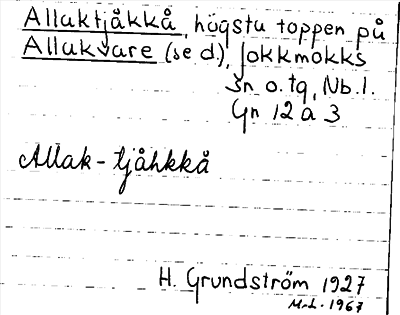 Allaktjåkkå, högsta toppen på
Allakvare (se d.), Jokkmokks
Sn o. tg, Nb. l.
Gn 12 a 3
Allak-tjåhkkå
H. Grundström 1927
M.L. 1967